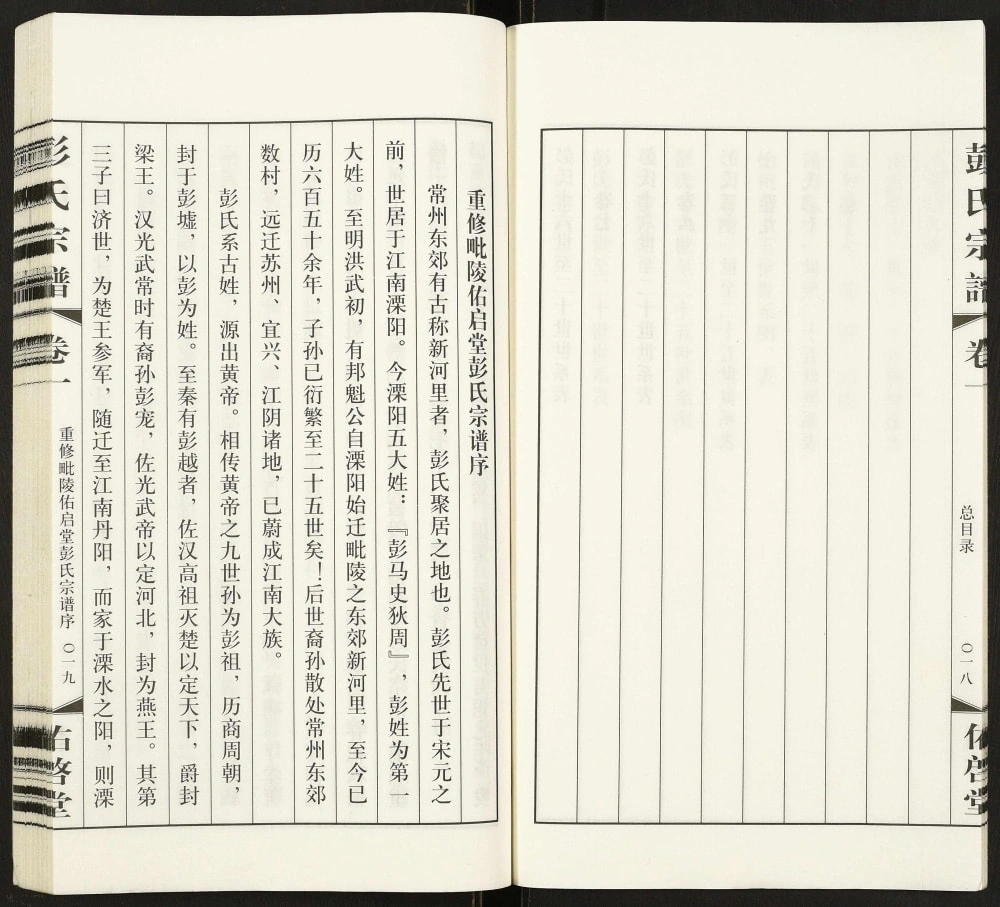 彭氏宗谱
卷一
总目录
〇一八
佑啓堂
重修毗陵佑启堂彭氏宗谱序
常州东郊有古称新河里者，彭氏聚居之地也。彭氏先世于宋元之
前，世居于江南溧阳。今溧阳五大姓：『彭马史狄周』，彭姓为第一
大姓。至明洪武初，有邦魁公自溧阳始迁毗陵之东郊新河里，至今已
历六百五十余年，子孙已衍繁至二十五世矣！后世裔孙散处常州东郊
数村，远迁苏州、宜兴、江阴诸地，已蔚成江南大族。
彭氏系古姓，源出黄帝。相传黄帝之九世孙为彭祖，历商周朝，
封于彭墟，以彭为姓。至秦有彭越者，佐汉高祖灭楚以定天下，爵封
梁王。汉光武常时有裔孙彭宠，佐光武帝以定河北，封为燕王。其第
三子曰济世，为楚王参军，随迁至江南丹阳，而家于溧水之阳，则溧
彭氏宗谱
卷一
重修毗陵佑启堂彭氏宗谱序
〇一九
佑啓堂